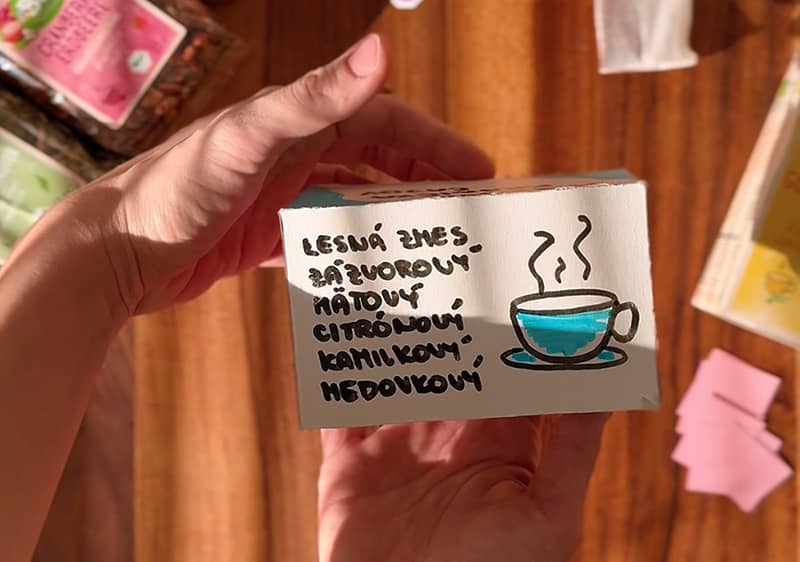 LESNÁ ZMES
ZÁZVOROVÝ
MÄTOVÝ
CITRÓNOVÝ
KAMILKOVÝ
MEDOVKOVÝ